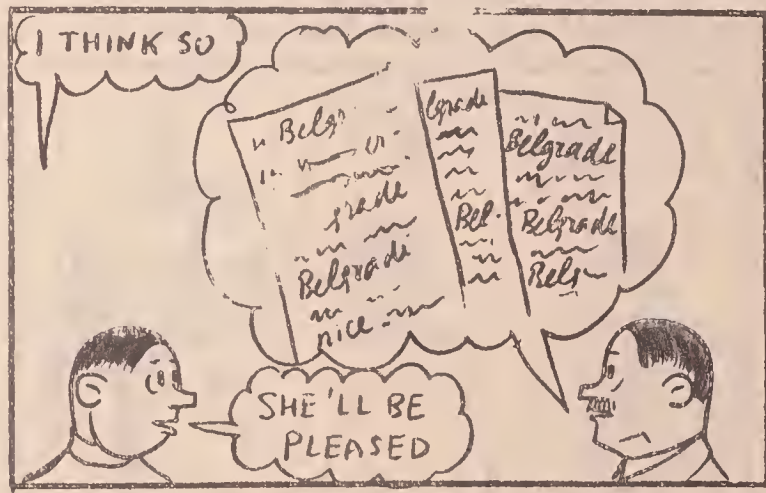 I THINK SO
Belgr
grade
Belgrade
nice
lgrade
Bel.
Belgrade
Belgrade
Belg
SHE'LL BE
PLEASED